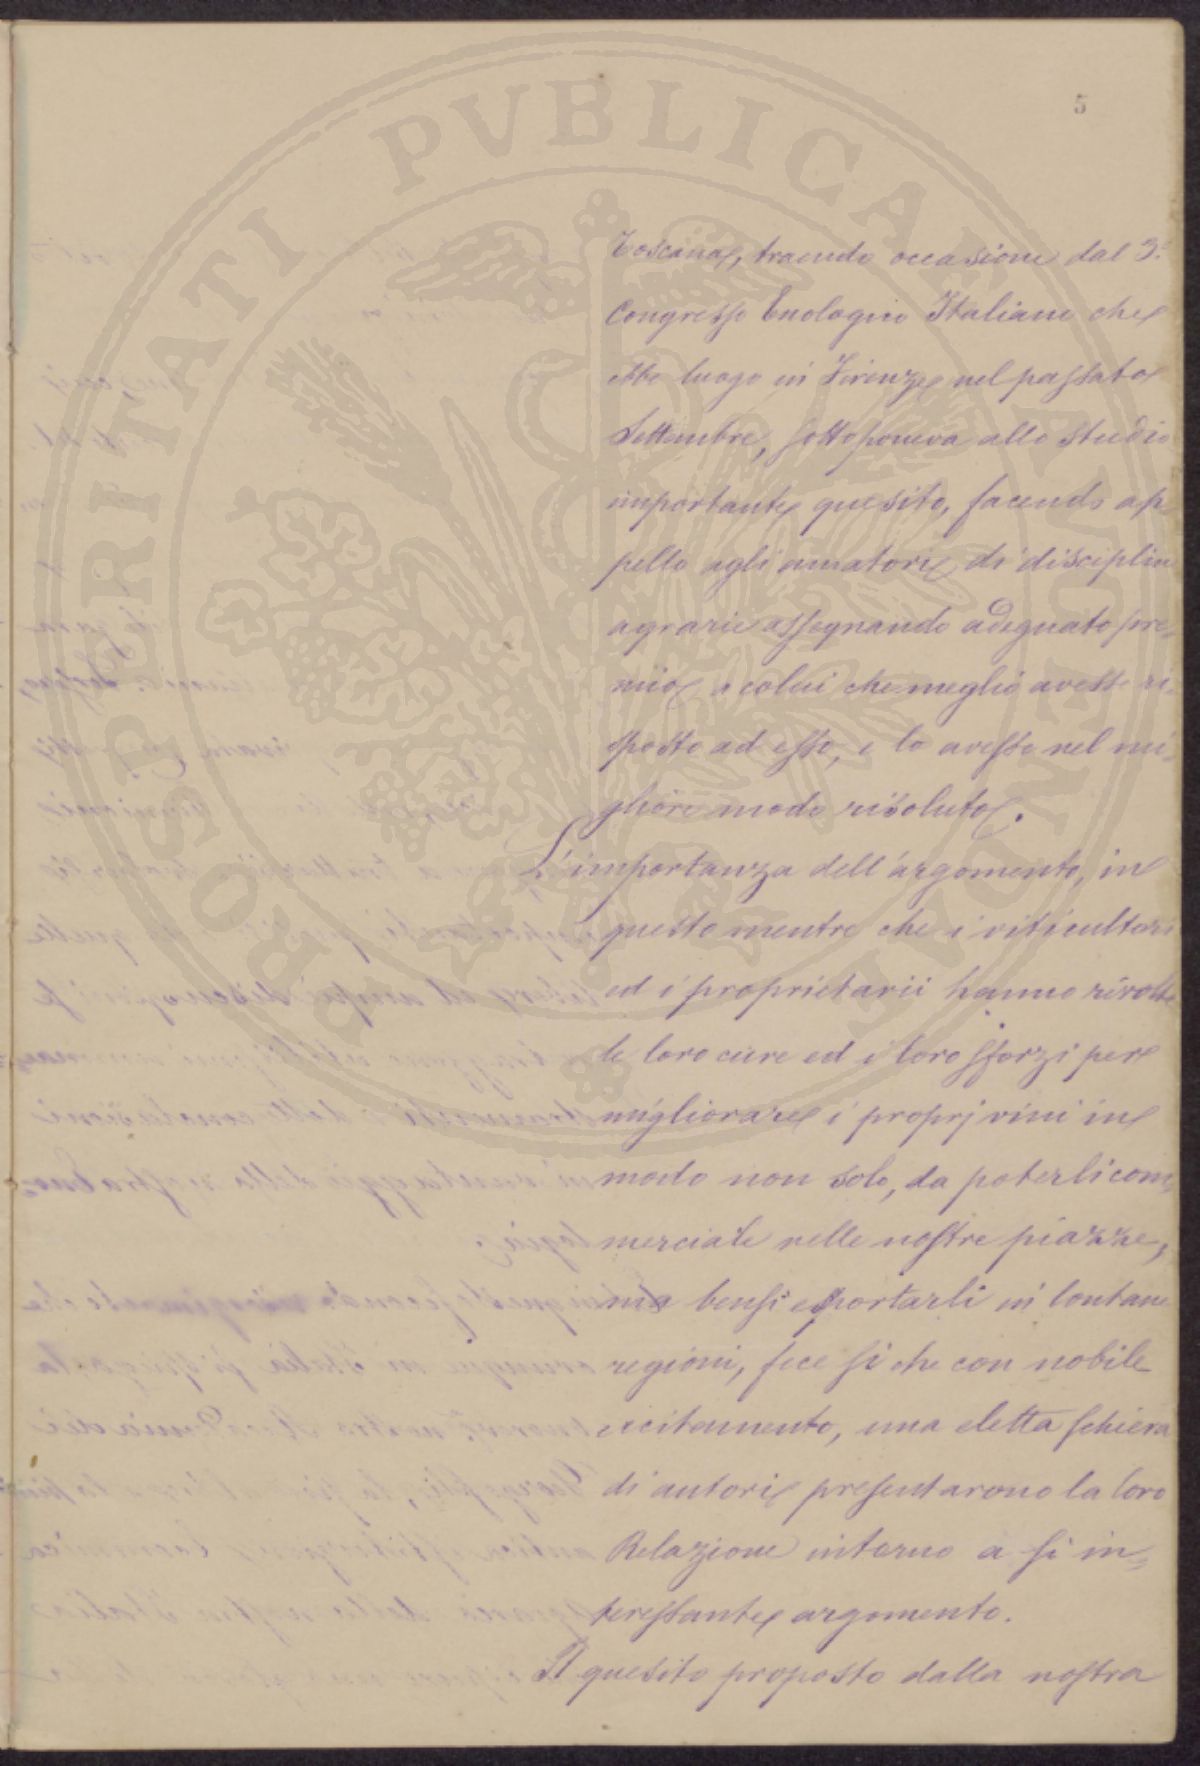 5
Toscana, traendo occasione dal 3.°
Congresso Enologico Italiano che
ebbe luogo in Firenze nel passato
Settembre, sottoponeva allo studio
importante quesito, facendo ap-
pello agli amatori di disciplin
agrarie assegnando adeguato pre-
mio a colui che meglio avesse ri-
sposto ad esso, e lo avesse nel mi-
gliore modo risoluto.
L'importanza dell'argomento, in
questo mentre che i viticultori
ed i proprietarii hanno rivolte
le loro cure ed i loro sforzi per
migliorare i proprj vini in
modo non solo, da poterli com-
merciale nelle nostre piazze,
ma bensi esportarli in lontane
regioni, fece si che con nobile
eccitamento, una eletta schiera
di autori presentarono la loro
Relazione intorno a si in-
teressante argomento.
Il quesito proposto dalla nostra
PROSPERITATI PVBLICAE